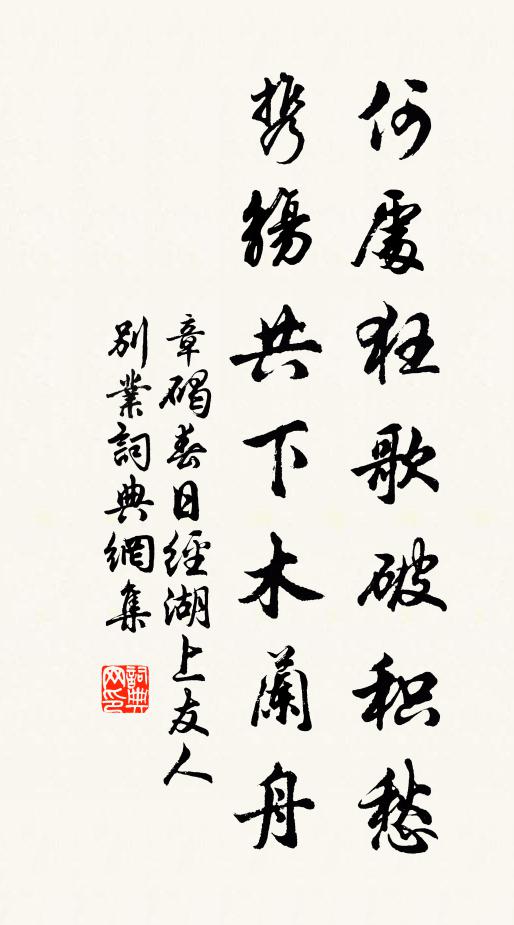 何處狂歌破积愁
携觴共下木蘭舟
章碣春日經湖上友人
別業詞典網集
詞典网印